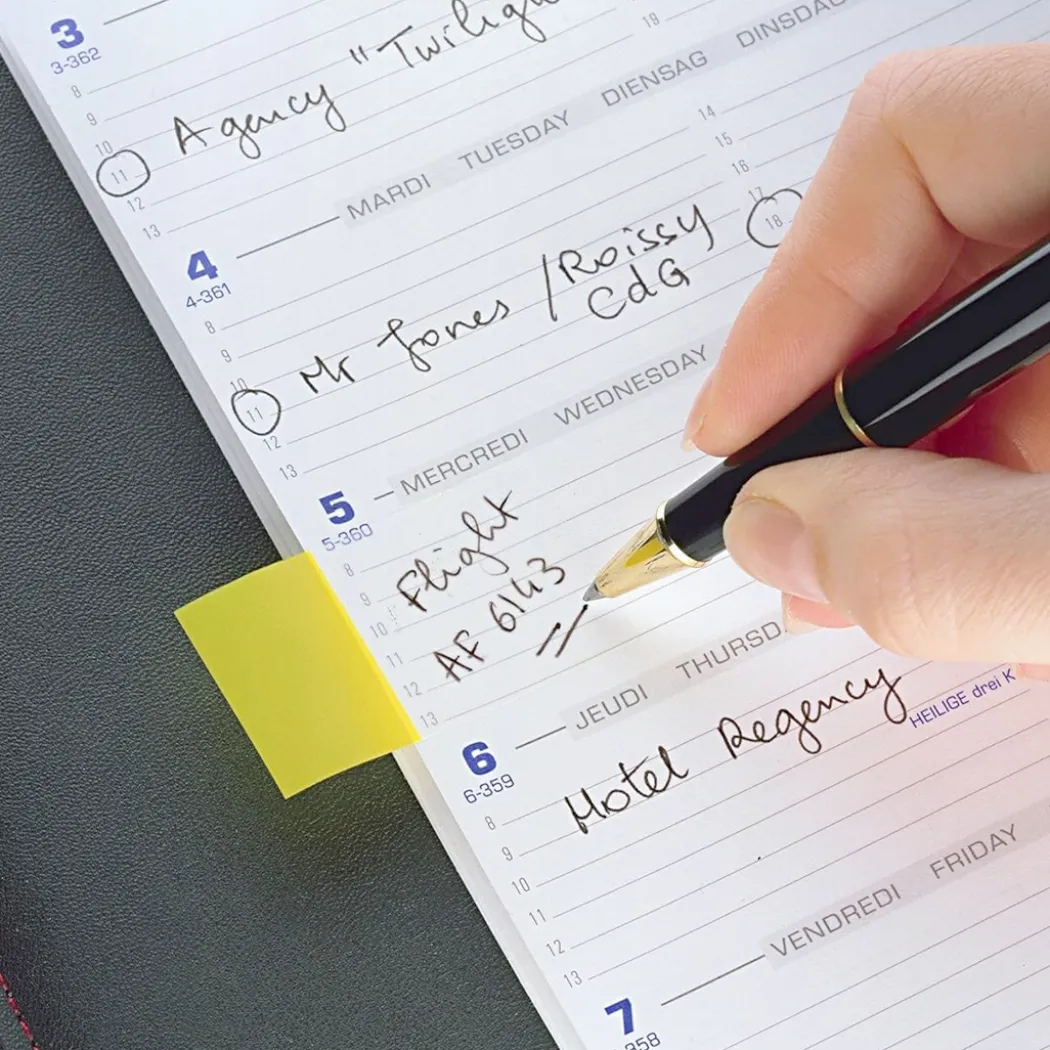 3
3-362
8
9
10
11
12
13
19
Agency "Twilight
MARDI TUESDAY DIENSAG DINSDAG
4
4-361
8
9
10
11
12
13
14
15
16
17
18
Mr Jones / Roissy
CdG
MERCREDI WEDNESDAY
5
5-360
8
9
10
11
12
13
Flight
AF 6143
JEUDI THURSD
6
6-359
8
9
10
11
12
13
Hotel Regency
HEILIGE drei K
VENDREDI FRIDAY
7
358